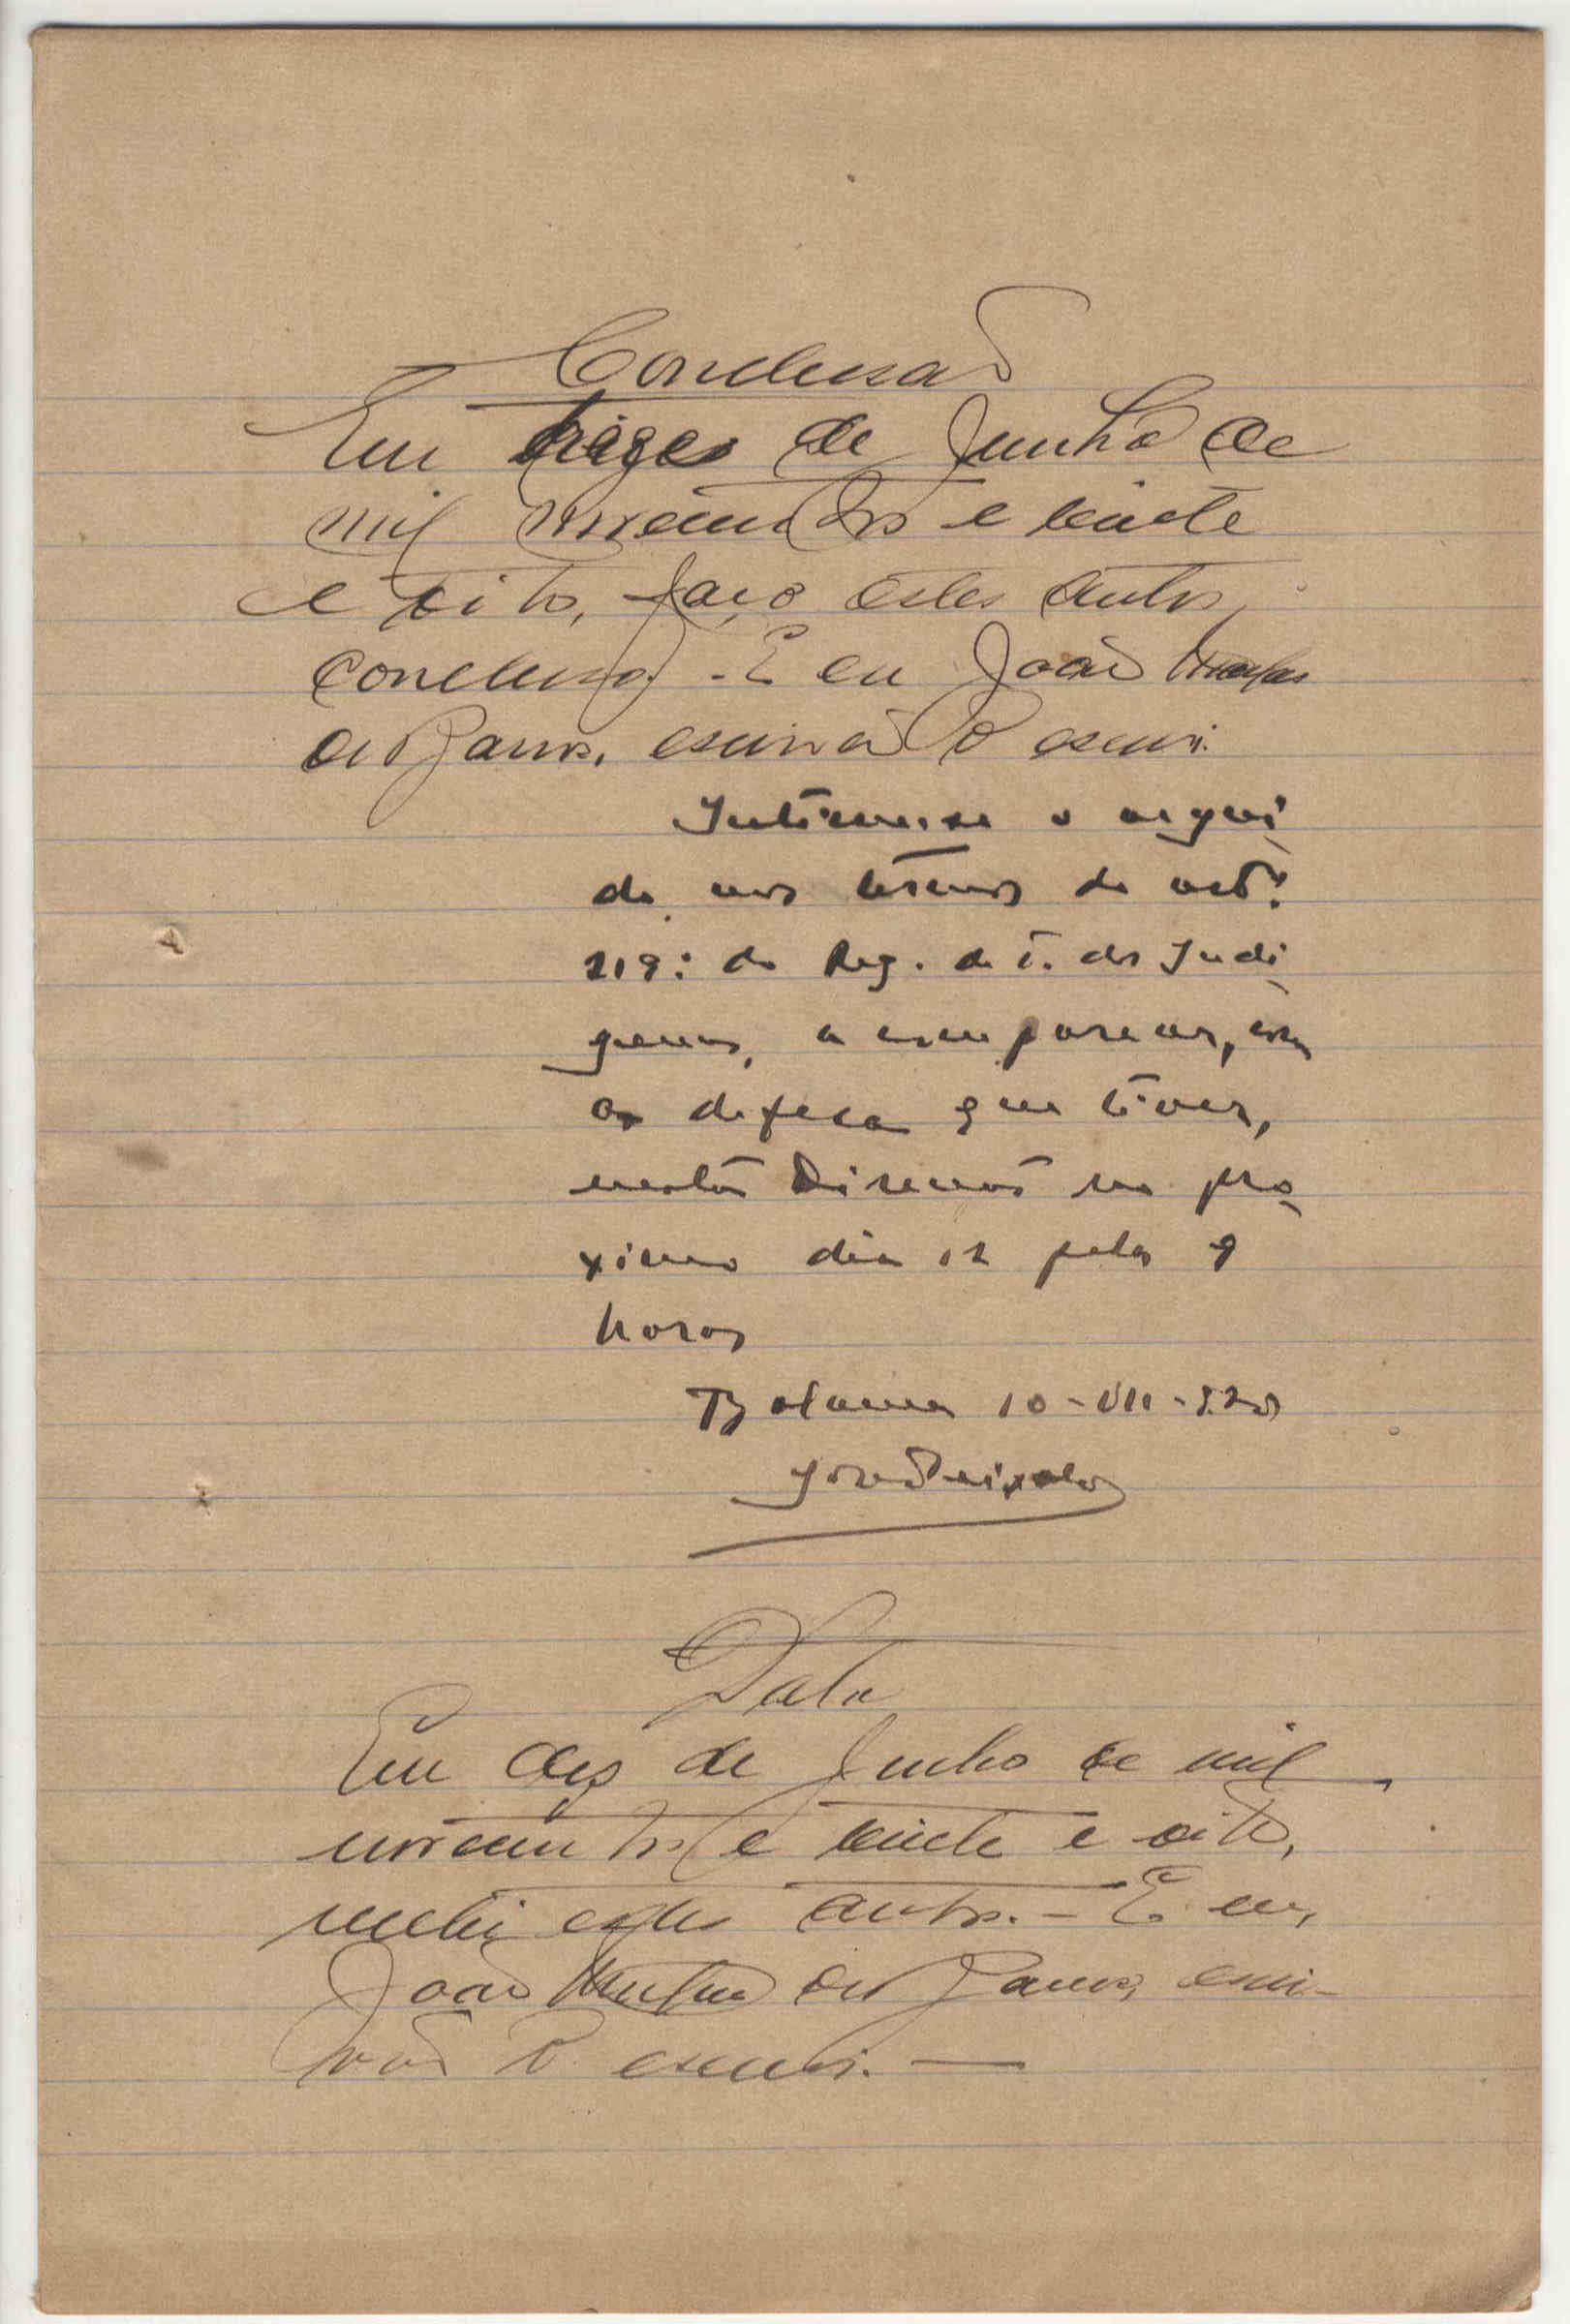 Conclusão
Em treze de Junho de
mil novecentos e vinte
e oito, faço estes autos
conclusos. E eu João
de Barros, escrivão o escrevi.
Intime-se o argui
do nos termos do artº
219º do Reg. do T. dos Indi
genas, a comparecer, com
a defesa que tiver,
nesta Direcção no pro
ximo dia 12 pelas 9
horas
Bolama 10-VII-928
José Peixoto
Data
Em dez de Junho de mil
novecentos e vinte e oito,
recebi estes autos. - E eu,
João de Barros, escri-
vão o escrevi. —